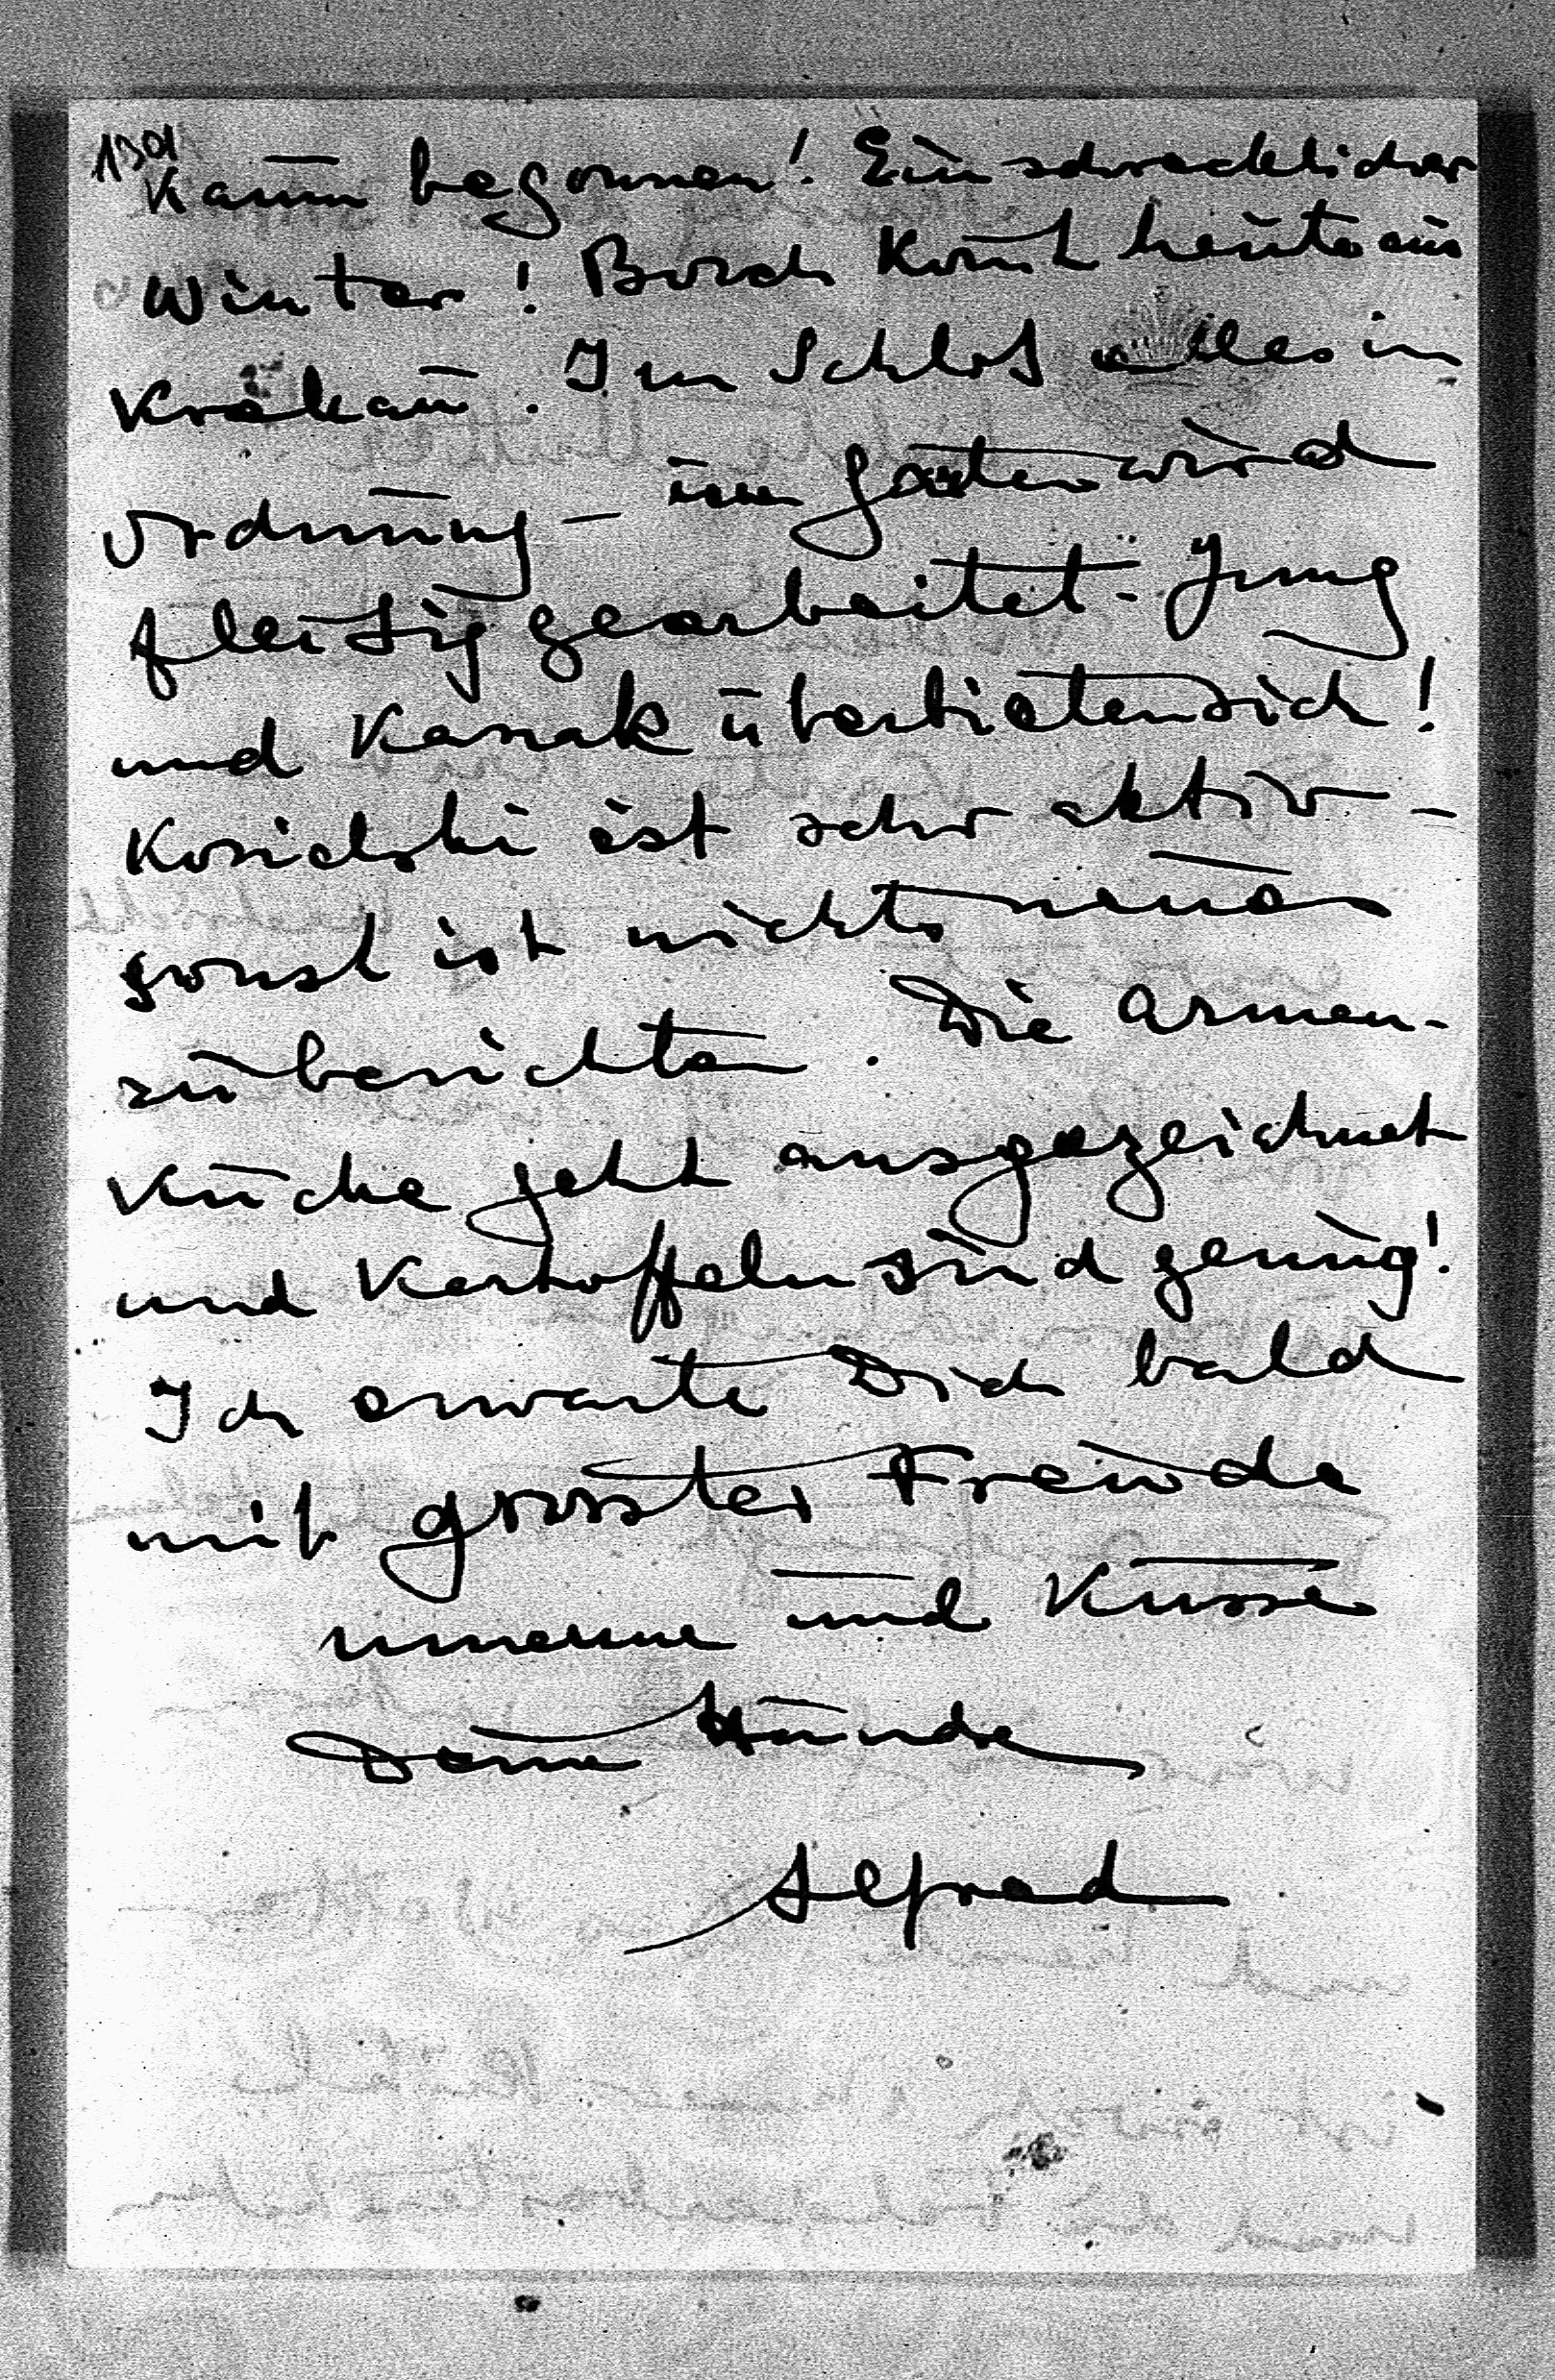 1301
Kaum begonnen! Ein schrecklicher
Winter! Borch komt heute aus
Krakau. Im Schloß alles in
Ordnung – im Garten wird
fleißig gearbeitet – Jung
und Kasnak überbieten sich!
Kosidski ist sehr aktiv –
sonst ist nichts neues
zu berichten. Die Armen-
küche geht ausgezeichnet
und Kartoffeln sind genug!
Ich erwarte Dich bald
mit grosster Freude
umarme und Küsse
Deine Hände
Alfred